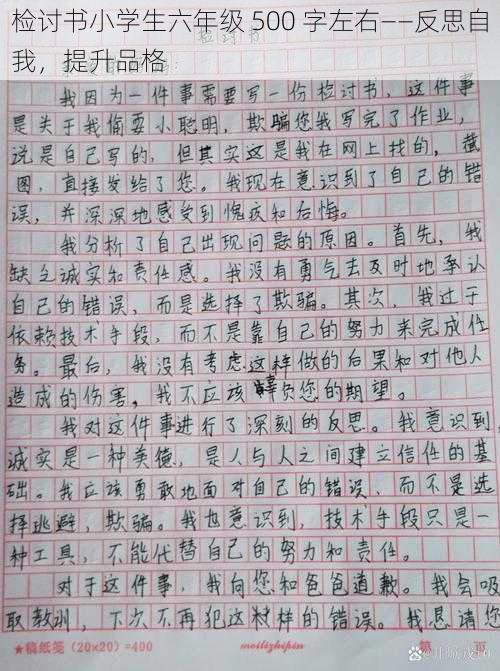 检讨书小学生六年级 500 字左右——反思自
我，提升品格
检讨书
我因为一件事需要写一份检讨书，这件事
是关于我偷耍小聪明，欺骗您我写完了作业，
说是自己写的，但其实这是我在网上找的，截
图，直接发给了您。我现在意识到了自己的错
误，并深深地感受到愧疚和后悔。
我分析了自己出现问题的原因。首先，我
缺乏诚实和责任感。我没有勇气去及时地承认
自己的错误，而是选择了欺骗。其次，我过于
依赖技术手段，而不是靠自己的努力来完成任
务。最后，我没有考虑这样做的后果和对他人
造成的伤害。我不应该辜负您的期望。
我对这件事进行了深刻的反思。我意识到，
诚实是一种美德，是人与人之间建立信任的基
础。我应该勇敢地面对自己的错误，而不是选
择逃避，欺骗。我也意识到，技术手段只是一
种工具，不能代替自己的努力和责任。
对于这件事，我向您和爸爸道歉。我会吸
取教训，下次不再犯这样的错误。我恳请您
★稿纸笺（20×20）=400 meilizhipin 第 页